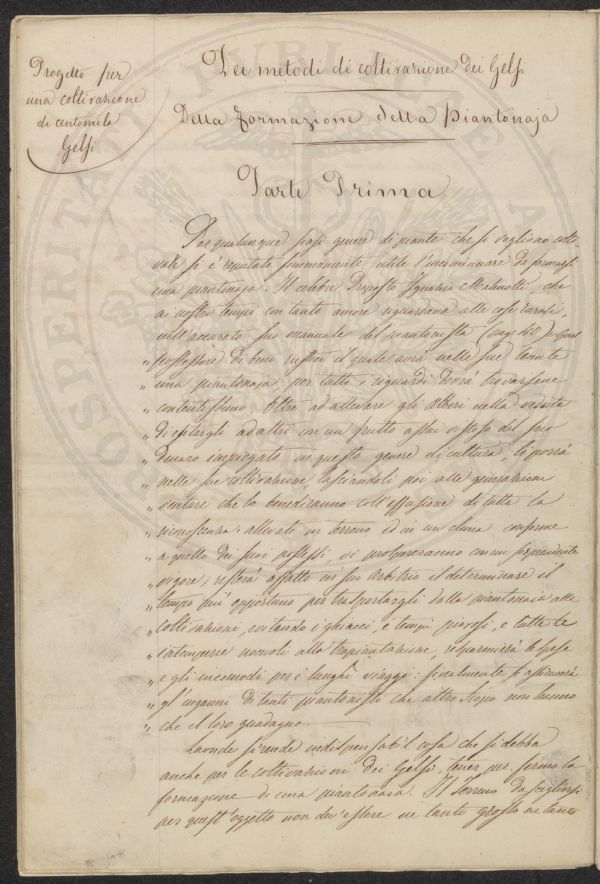 Progetto per
una coltivazione
di centomila
Gelsi
Dei metodi di coltivazione dei Gelsi
Della formazione della Piantonaja
Parte Prima
Per qualunque siasi genere di piante che si vogliono colti-
vare si è reputato sommamente utile l'incominciare da formarsi
una piantonaja. Il celebre Proposto Ignazio Malenotti, che
a nostri tempi con tanto amore riguardava alle cose rurali,
nell'accurato suo manuale del piantonista
„ possessore di beni rustici il quale avrà nelle sue tenute
„ una piantonaja, per tutti i riguardi dovrà trovarsene
„ contentissimo. Oltre ad allevare gli alberi nella veduta
„ di esitargli ad altri con un frutto assai del suo
„ denaro impiegato in questo genere di cultura, li porrà
„ nelle sue coltivazioni, lasciandoli poi alle generazioni
„ venture che lo benediranno coll'effusione di tutta la
„ riconoscenza: allevati in terreno ed in un clima conforme
„ a quello dei suoi possessi, vi prospereranno con un sorprendente
„ vigore; resterà affatto in suo arbitrio il determinare il
„ tempo più opportuno per trasportargli dalla piantonaia alle
„ coltivazioni, evitando i ghiacci, i tempi piovosi, e tutte le
„ intemperie nocevoli alla trapiantazione, risparmierà le spese
„ e gli incomodi per i lunghi viaggi: finalmente si
„ gl'inganni di tanti piantonisti che altro scopo non hanno
„ che il loro guadagno.
Laonde si rende indispensabil cosa che si debba
anche per le coltivazioni dei Gelsi, tener per fermo la
formazione di una piantonaia. Il terreno da scegliersi
per quest'oggetto non dev'essere ne tanto grosso ne tanto